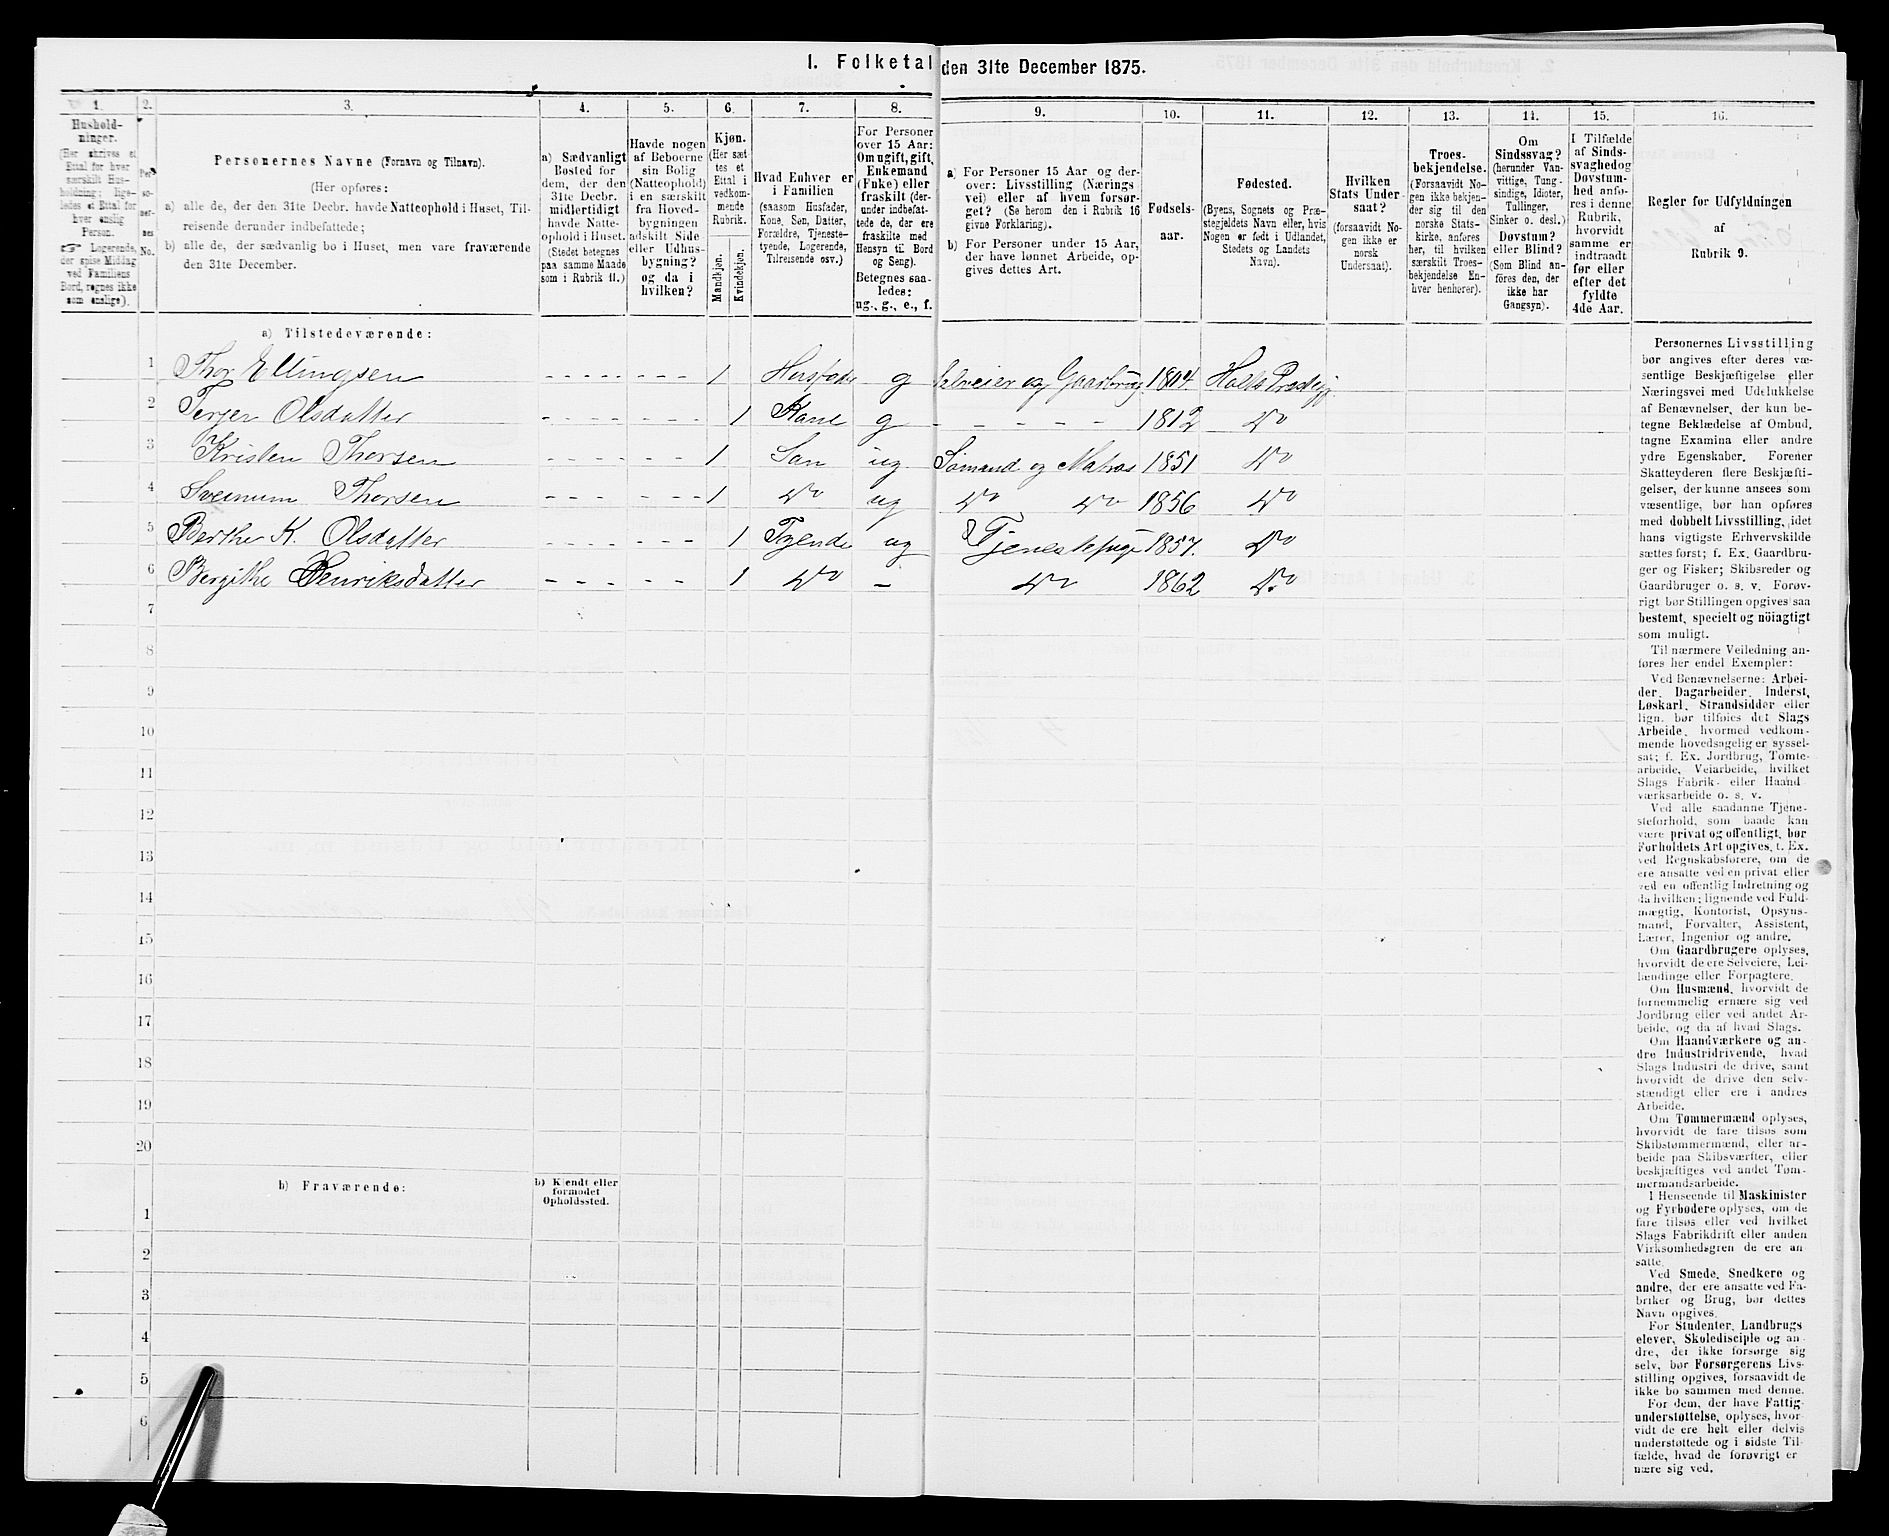 I. Folketal den 31te December 1875.
1. 2. 3. 4. 5. 6. 7. 8. 9. 10. 11. 12. 13. 14. 15. 16.
Hushold-
ninger.
(Her skrives et
Ettal for hver
særskilt Hus-
holdning; lige-
ledes et Ettal for
hver enslig
Person.
Logerende,
der spise Middag
ved Familiens
Bord, regnes ikke
som enslige).
Per-
so-
ner-
nes
No.
Personernes Navne (Fornavn og Tilnavn).
(Her opføres:
a) alle de, der den 31te Decbr. havde Natteophold i Huset, Til-
reisende derunder indbefattede;
b) alle de, der sædvanlig bo i Huset, men vare fraværende
den 31te December.
a) Sædvanligt
Bosted for
dem, der den
31te Decbr.
midlertidigt
havde Natte-
ophold i Huset.
(Stedet betegnes
paa samme Maade
som i Rubrik 11.)
Havde nogen
af Beboerne
sin Bolig
(Natteophold)
i en særskilt
fra Hoved-
bygningen
adskilt Side
eller Udhus-
bygning?
og da i
hvilken?
Kjøn.
(Her sæt-
tes et
Ettal i
vedkom-
mende
Rubrik.
Mandkjøn.
Kvindekjøn.
Hvad Enhver er
i Familien
(saasom Husfader,
Kone, Søn, Datter,
Forældre, Tjeneste-
tyende, Logerende,
Tilreisende osv.)
For Personer
over 15 Aar:
Om ugift, gift,
Enkemand
(Enke) eller
fraskilt (der-
under indbefat-
tede de, der ere
fraskilte med
Hensyn til Bord
og Seng).
Betegnes saa-
ledes:
ug., g., e., f.
a) For Personer 15 Aar og der-
over: Livsstilling (Nærings-
vei) eller af hvem forsør-
get? (Se herom den i Rubrik 16
givne Forklaring).
b) For Personer under 15 Aar,
der have lønnet Arbeide, op-
gives dettes Art.
Fødsels-
aar.
Fødested.
(Byens, Sognets og Præ-
stegjeldets Navn eller, hvis
Nogen er født i Udlandet,
Stedets og Landets
Navn).
Hvilken
Stats Under-
saat?
(forsaavidt No-
gen ikke er
norsk
Undersaat).
Troes-
bekjendelse.
(Forsaavidt No-
gen ikke bekjen-
der sig til den
norske Stats-
kirke, anføres
her, til hvilken
særskilt Troes-
bekjendelse En-
hver henhører).
Om
Sindssvag?
(herunder Van-
vittige, Tung-
sindige, Idioter,
Tullinger,
Sinker o. desl.)
Døvstum?
eller Blind?
(Som Blind an-
føres den, der
ikke har
Gangsyn).
I Tilfælde
af Sinds-
svaghed og
Døvstum-
hed anfø-
res i denne
Rubrik,
hvorvidt
samme er
indtraadt
før eller
efter det
fyldte
4de Aar.
Regler for Udfyldningen
af
Rubrik 9.
a) Tilstedeværende:
1 Thor Ellingsen 1 Husfader g Selveier og Gaardbrug. 1804. Holts Prestegj.
2 Terjer Olsdatter 1 Kone g 1812 Do
3 Kristen Thorsen 1 Søn ug. Sømand og Matros 1851 Do
4 Sveinum Thorsen 1 Do ug Do Do 1856 Do
5 Berthe K. Olsdatter 1 Tyende ug Tjenestepige 1857. Do
6 Bergithe Henriksdatter 1 Do - Do 1862 Do
7
8
9
10
11
12
13
14
15
16
17
18
19
20
b) Fraværende:
b) Kjendt eller
formodet
Opholdssted.
1
2
3
4
5
6
Personernes Livsstilling
bør angives efter deres væ-
sentlige Beskjæftigelse eller
Næringsvei med Udelukkelse
af Benævnelser, der kun be-
tegne Beklædelse af Ombud,
tagne Examina eller andre
ydre Egenskaber. Forener
Skatteyderen flere Beskjæfti-
gelser, der kunne ansees som
væsentlige, bør han opføres
med dobbelt Livsstilling, idet
hans vigtigste Erhvervskilde
sættes først; f. Ex. Gaardbru-
ger og Fisker; Skibsreder og
Gaardbruger o. s. v. Forøv-
rigt bør Stillingen opgives saa
bestemt, specielt og nöiagtigt
som muligt.
Til nærmere Veiledning an-
føres her endel Exempler:
Ved Benævnelserne: Arbei-
der, Dagarbeider, Inderst,
Løskarl, Strandsidder eller
lign. bør tilføies det Slags
Arbeide, hvormed vedkom-
mende hovedsagelig er syssel-
sat; f. Ex. Jordbrug, Tomte-
arbeide, Veiarbeide, hvilket
Slags Fabrik- eller Haand-
værksarbeide o. s. v.
Ved alle saadanne Tjene-
steforhold, som baade kan
være privat og offentligt, bør
Forholdets Art opgives, t. Ex.
ved Regnskabsførere, om de
ere ansatte ved en privat eller
ved en offentlig Indretning og
da hvilken; lignende ved Fuld-
mægtig, Kontorist, Opsyns-
mand, Forvalter, Assistent,
Lærer, Ingeniør og andre.
Om Gaardbrugere oplyses,
hvorvidt de ere Selveiere, Lei-
lændinge eller Forpagtere.
Om Husmænd, hvorvidt de
fornemmelig ernære sig ved
Jordbrug eller ved andet Ar-
beide, og da af hvad Slags.
Om Haandværkere og an-
dre Industridrivende, hvad
Slags Industri de drive, samt
hvorvidt de drive den selv-
stændigt eller ere i andres
Arbeide.
Om Tømmermænd oplyses,
hvorvidt de fare tilsøs som
Skibstømmermænd, eller ar-
beide paa Skibsværfter, eller
beskjæftiges ved andet Tøm-
mermandsarbeide.
I Henseende til Maskinister
og Fyrbødere oplyses, om de
fare tilsøs eller ved hvilket
Slags Fabrikdrift eller anden
Virksomhedsgren de ere an-
satte.
Ved Smede, Snedkere og
andre, der ere ansatte ved Fa-
briker og Brug, bør dettes
Navn opgives.
For Studenter, Landbrugs-
elever, Skoledisciple og an-
dre, der ikke forsørge sig
selv, bør Forsørgerens Livs-
stilling opgives, forsaavidt de
ikke bo sammen med denne.
For dem, der have Fattig-
understøttelse, oplyses, hvor-
vidt de ere helt eller delvis
understøttede og i sidste Til-
fælde, hvad de forøvrigt er-
nære sig ved.